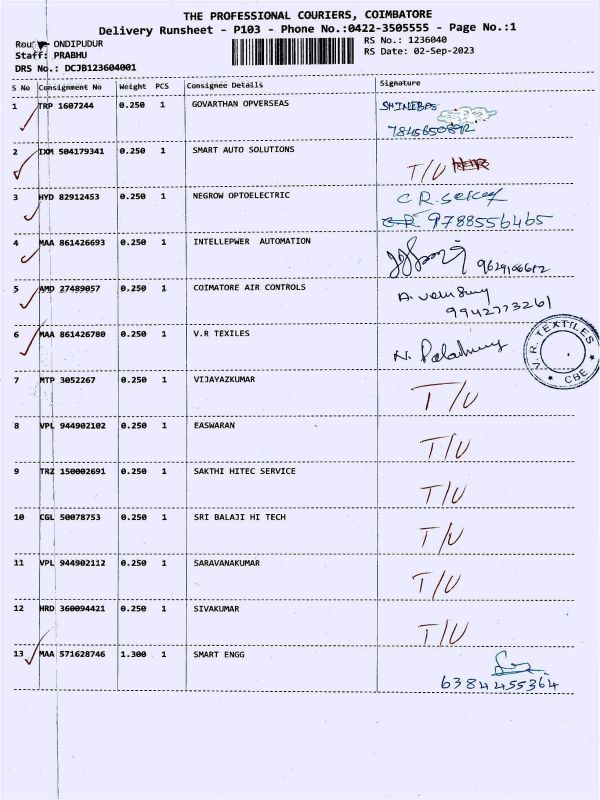 THE PROFESSIONAL COURIERS, COIMBATORE
Delivery Runsheet - P103 - Phone No.:0422-3505555 - Page No.:1
Rou ONDIPUDUR
RS No.: 1236040
Staff: PRABHU
RS Date: 02-Sep-2023
DRS No.: DCJB123604001
S No Consignment No Weight PCS Consignee Details Signature
1 TRP 1607244 0.250 1 GOVARTHAN OPVERSEAS SHINEBAS
7845650892
2 IXM 504179341 0.250 1 SMART AUTO SOLUTIONS T/U
3 HYD 82912453 0.250 1 NEGROW OPTOELECTRIC C.R.
9788556465
4 MAA 861426693 0.250 1 INTELLEPWER AUTOMATION
5 AMD 27489057 0.250 1 COIMATORE AIR CONTROLS A.
9942773261
6 MAA 861426780 0.250 1 V.R TEXILES N.
V.R. TEXTILES
★ CBE ★
7 MTP 3052267 0.250 1 VIJAYAZKUMAR T/U
8 VPL 944902102 0.250 1 EASWARAN T/U
9 TRZ 150002691 0.250 1 SAKTHI HITEC SERVICE T/U
10 CGL 50078753 0.250 1 SRI BALAJI HI TECH T/U
11 VPL 944902112 0.250 1 SARAVANAKUMAR T/U
12 HRD 360094421 0.250 1 SIVAKUMAR T/U
13 MAA 571628746 1.300 1 SMART ENGG
6384455364